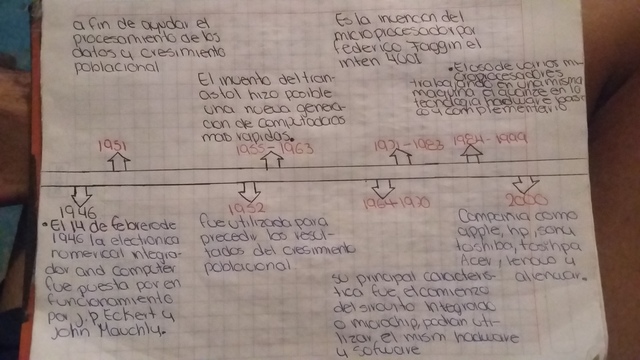 a fin de ayudar el
procesamiento de los
datos y cresimiento
poblacional
Es la invencion del
microprocesador por
federico Faggin el
inten 4001
El invento del tran-
sistol hizo posible
una nueva genera-
cion de computadoras
mas rapidas.
•El uso de varios mi-
croprocesadores
trabajando en una misma
maquina avance en la
tecnologia hardware
y complementario
1951
1955-1963
1971-1983
1984-1999
1946
1952
1964-1970
2000
•El 14 de febrero de
1946 la electronica
numerical integra-
dor and computer
fue puesta por en
funcionamiento
por J.P Eckert y
John Mauchly.
fue utilizada para
precedir los resul-
tados del cresimiento
poblacional
su principal caracteris-
tica fue el comienzo
del sircuito integrado
o microchip, podian uti-
lizar el mism hadware
y sofware
Compañia como
apple, hp, sony
toshiba, toschpa
Acer, lenovo y
alienwar.